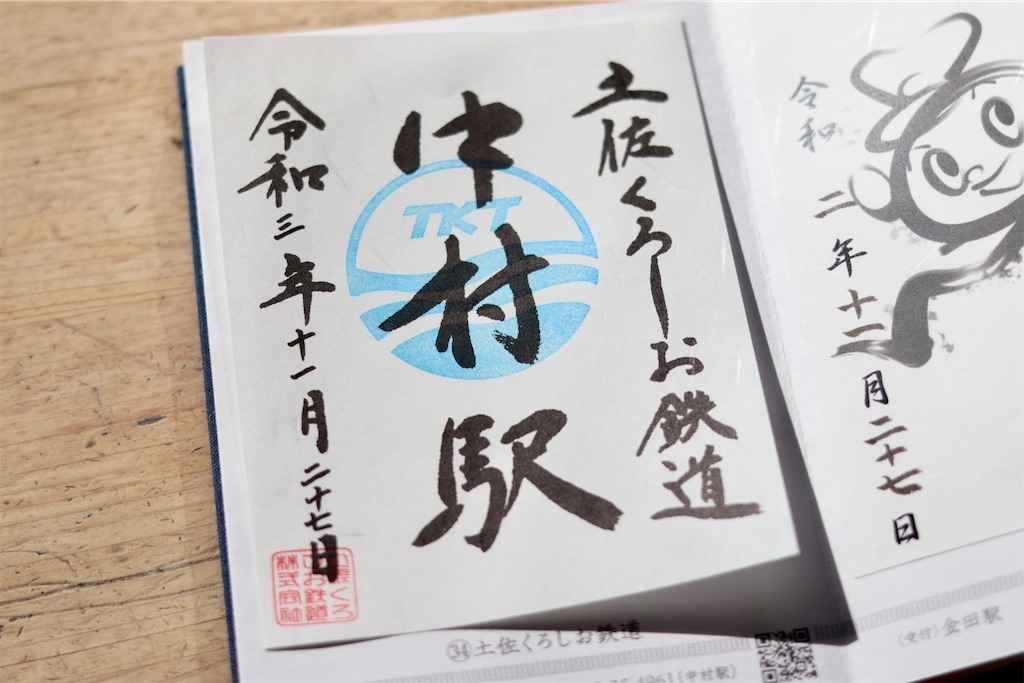 土佐くろしお鉄道
中村駅
TKT
令和三年十一月二十七日
土佐くろ
しお鉄道
株式会社
㉞土佐くろしお鉄道
35-4961(中村駅)
令和二年十一月二十七日
(受付)金田駅